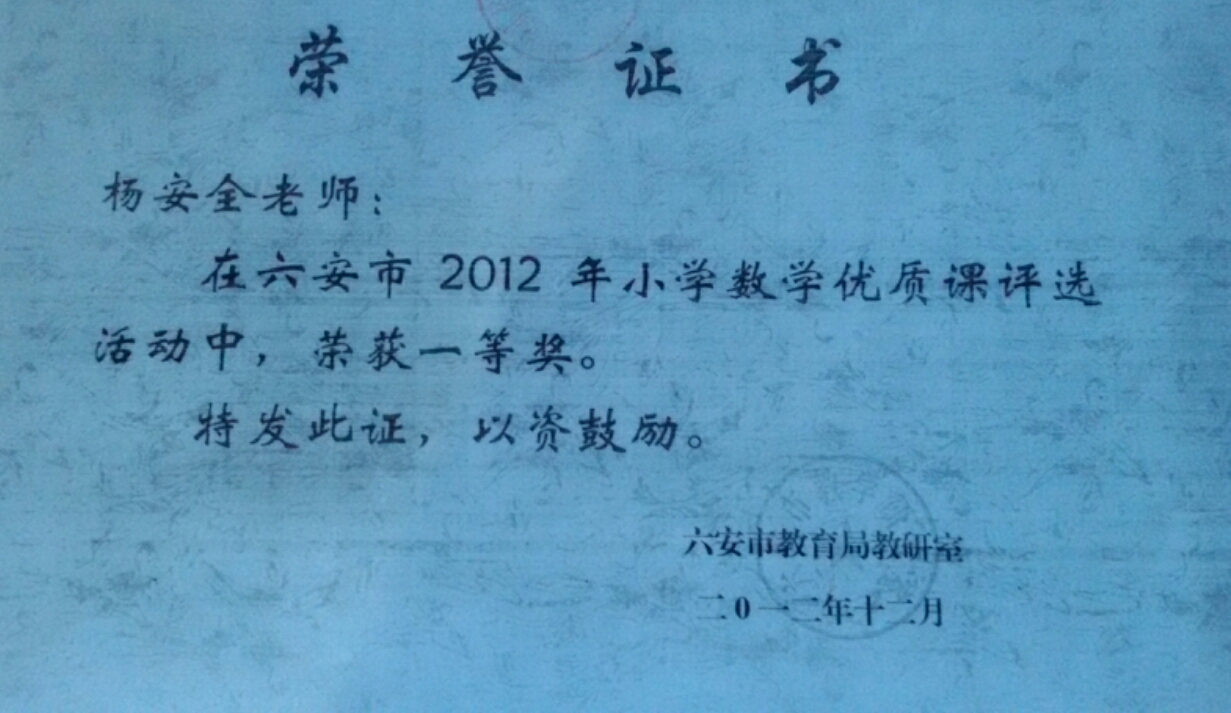 荣誉证书
杨安全老师：
在六安市 2012 年小学数学优质课评选
活动中，荣获一等奖。
特发此证，以资鼓励。
六安市教育局教研室
二0一二年十二月